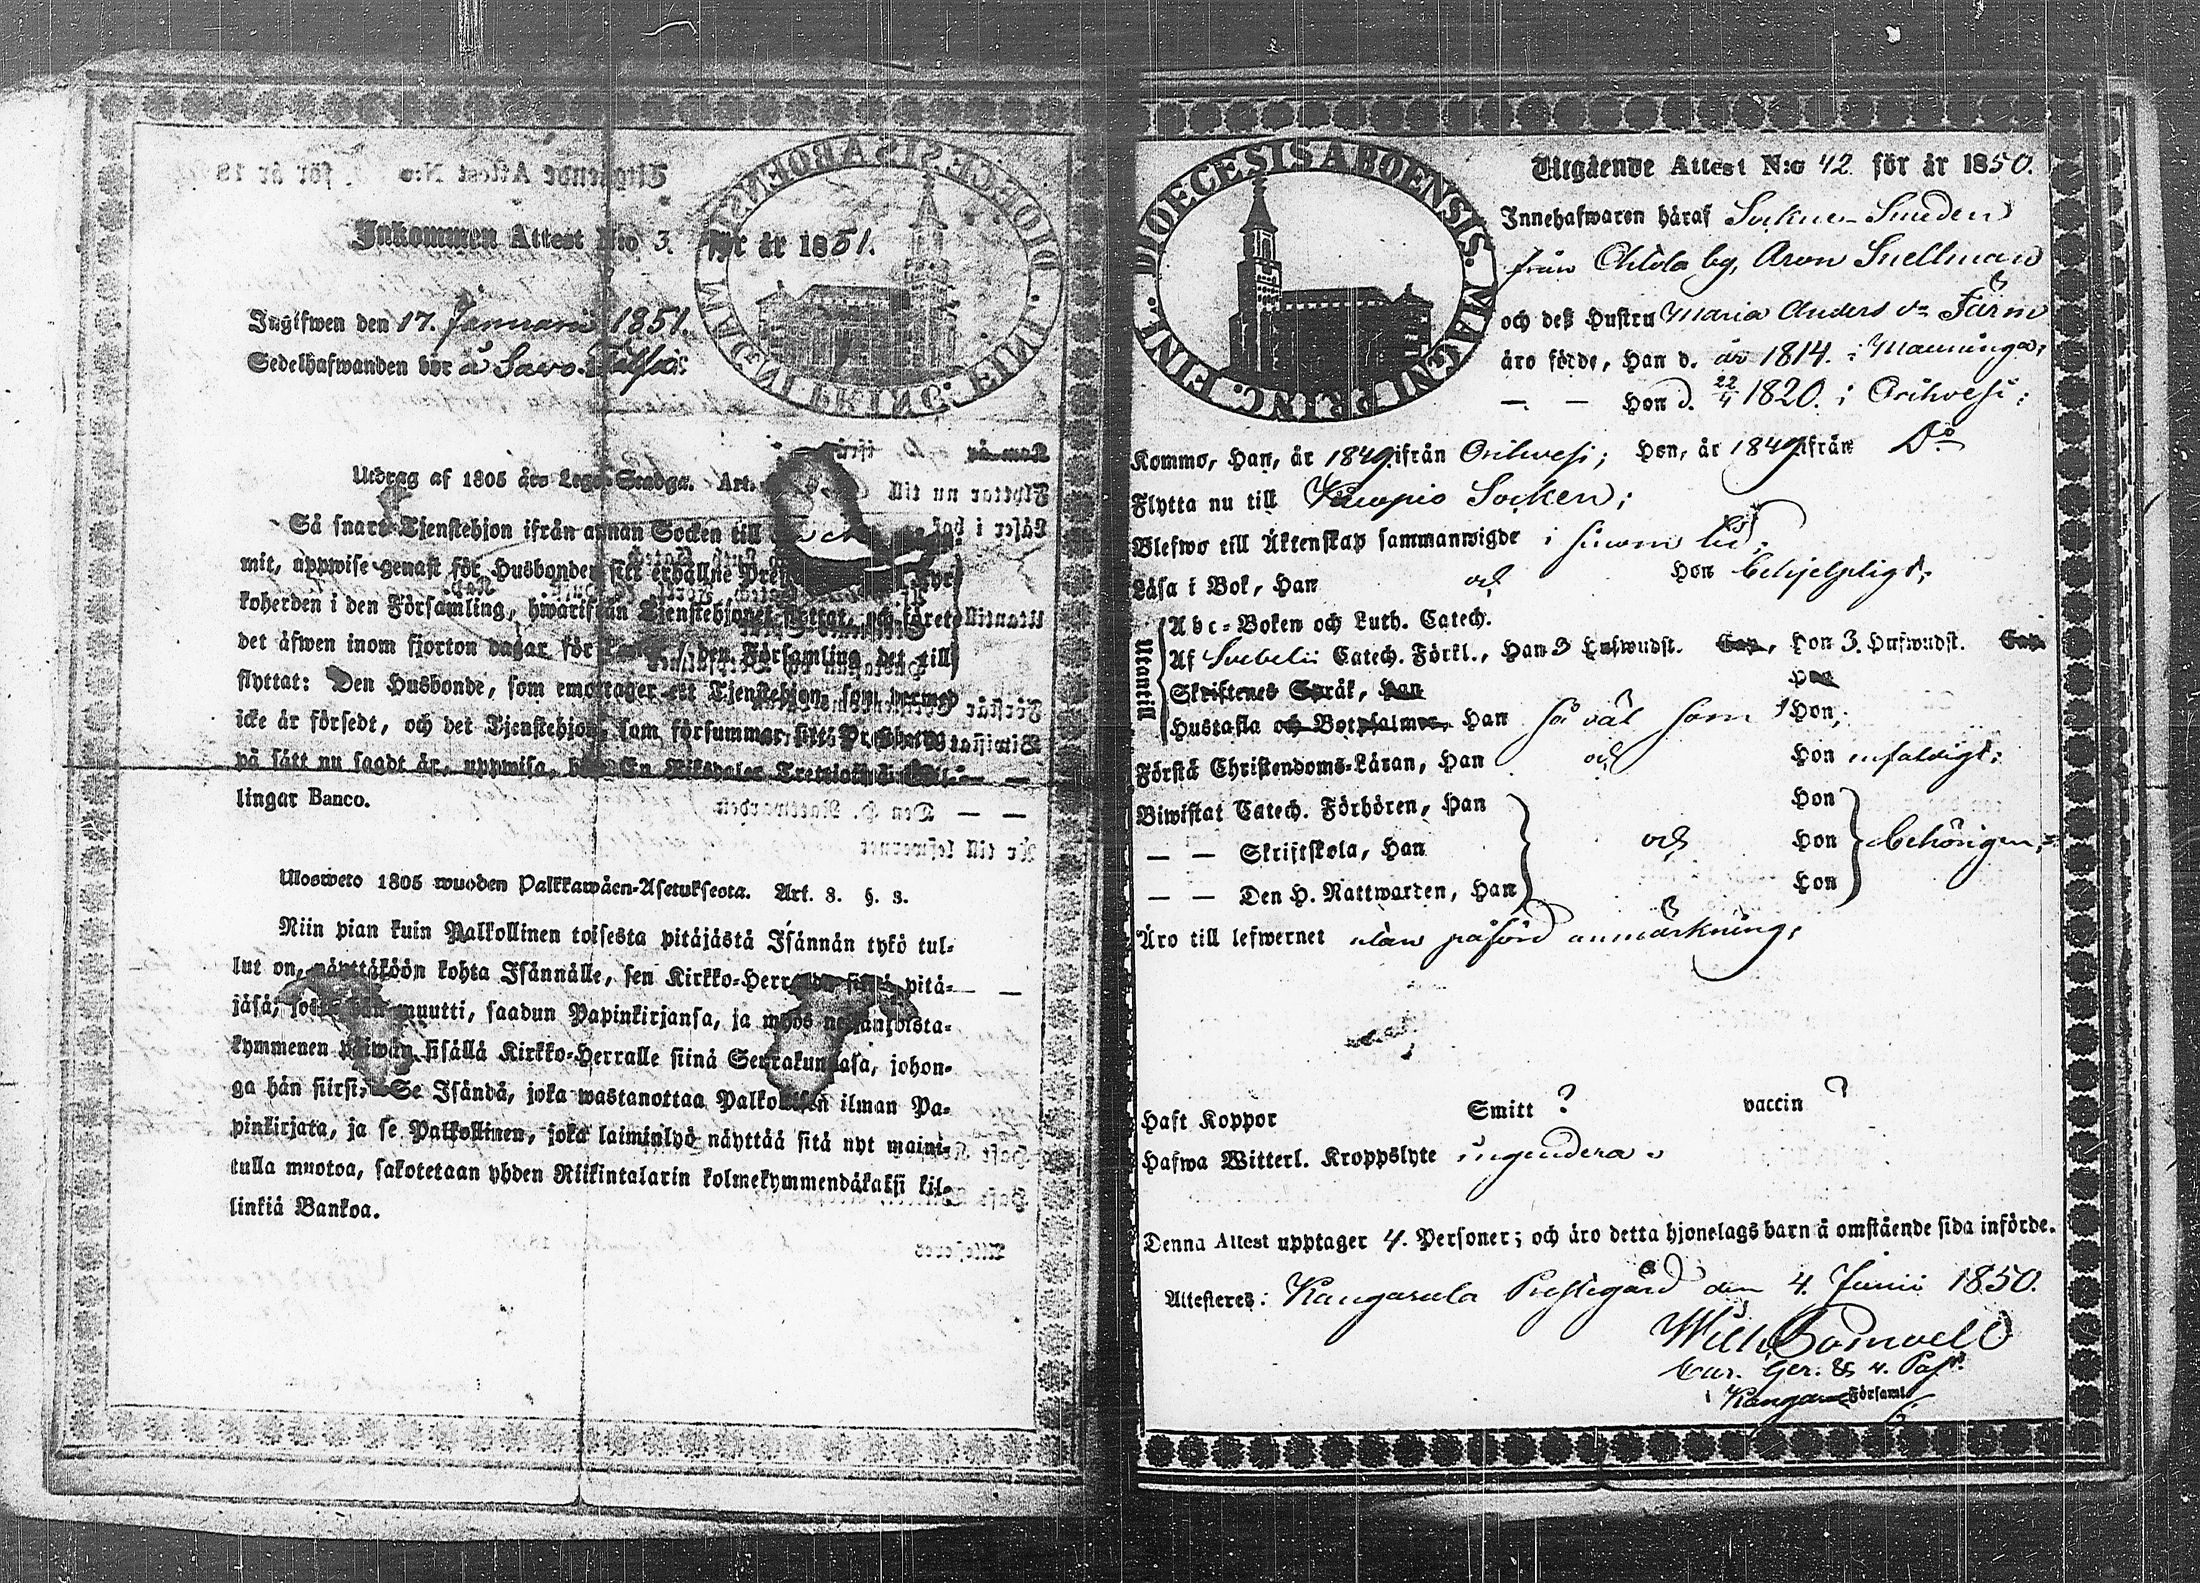 Inkommen Attest N:o 3. för år 1851.
Ingifwen den 17. Januarii 1851.
Sedelhafwanden bor å Savo
Utdrag af 1805 års Lego-Stadga. Art.
Så snart Tjenstehjon ifrån annan Socken till
mit, uppwise genast för Husbonden sitt erhållne
koherden i den Församling, hwarifrån Tjenstehjonet flyttat, och förete
det äfwen inom fjorton dagar för i den Församling det till
flyttat: Den Husbonde, som emottager ett Tjenstehjon, som dermed
icke är försedt, och det Tjenstehjon, som försummar sitt
på sätt nu sagdt är, uppwisa, böte En Riksdaler Trettiotwå Skil-
lingar Banco.
Ulosweto 1805 wuoden Palkkawäen-Asetuksesta. Art. 3. §. 3.
Niin pian kuin Palkollinen toisesta pitäjästä Isännän tykö tul-
lut on, näyttäköön kohta Isännälle, sen Kirkko-Herralda siinä pitä-
jäsä, josta hän muutti, saadun Papinkirjansa, ja myös neljäntoista-
kymmenen päiwän sisällä Kirkko-Herralle siinä Seurakunnasa, johon-
ga hän siirsi; Se Isändä, joka wastanottaa Palkollisen ilman Pa-
pinkirjata, ja se Palkollinen, joka laiminlyö näyttää sitä nyt maini-
tulla muotoa, sakotetaan yhden Riikintalarin kolmekymmendäkaksi kil-
linkiä Bankoa.
DIOECESIS ABOENSIS. MAGNI PRINC. FINL.
Utgående Attest N:o 42 för år 1850.
Innehafwaren häraf Sockne-Smeden
från Ohtola by, Aron Snellman
och deß Hustru Maria Anders dr Färm
äro födde, Han d. år 1814. i Manninga;
— — Hon d. 22/4 1820. i Orihvesi;
Kommo, Han, år 1849 ifrån Orihvesi; Hon, år 1849 ifrån Do
Flytta nu till Kuopio Socken;
Blefwo till Äktenskap sammanwigde i sinom tid;
Läsa i Bok, Han och Hon behjelpligt;
Utantill
Abc-Boken och Luth. Catech.
Af Svebelii Catech. Förkl., Han 3 Hufwudst. Cap., Hon 3. Hufwudst. Cap.
Skriftenes Språk, Han Hon
Hustafla och Botpsalmer, Han så väl som Hon;
Förstå Christendoms-Läran, Han och Hon enfaldigt;
Biwistat Catech. Förhören, Han Hon
— — Skriftskola, Han och Hon behörigen;
— — Den H. Nattwarden, Han Hon
Äro till lefwernet utan påförd anmärkning,
Haft Koppor Smitt ? vaccin ?
Hafwa Witterl. Kroppslyte ingendera
Denna Attest upptager 4. Personer; och äro detta hjonelags barn å omstående sida införde.
Attesteres: Kangasala Prestegård den 4. Junii 1850.
Cur. Ger. & v. Past.
i Kangasala Församl.